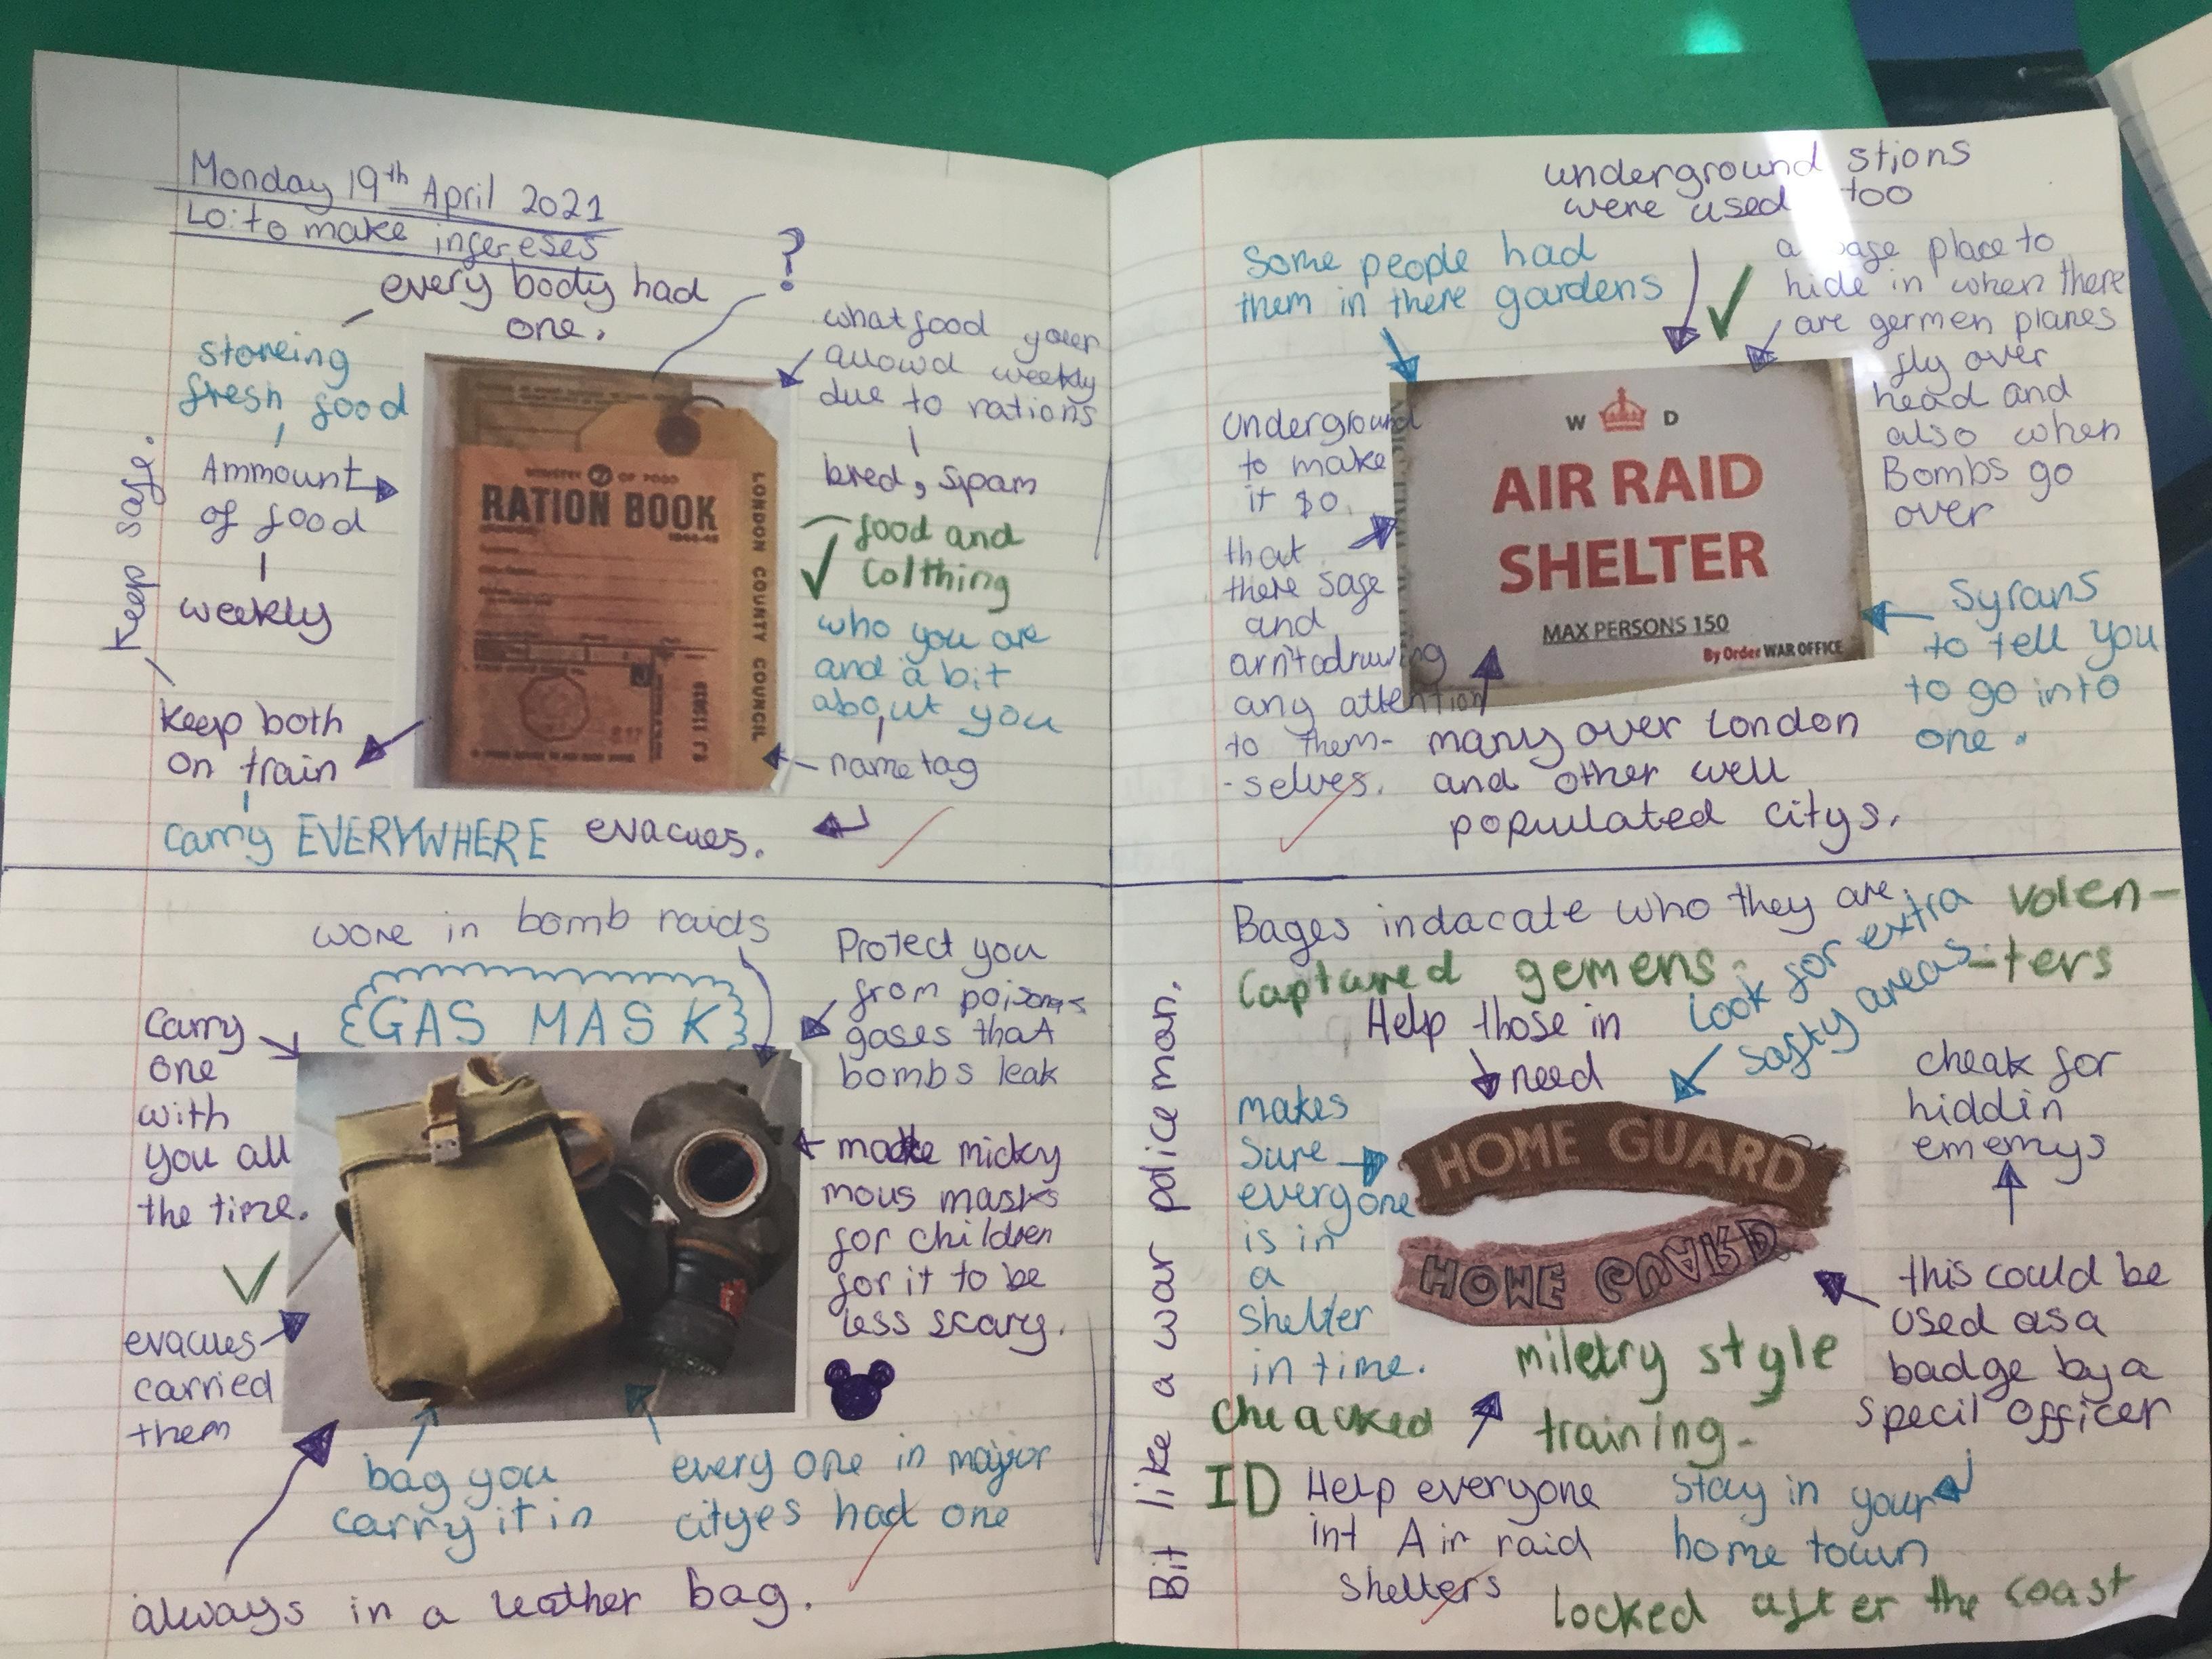 Monday 19th April 2021
LO: to make infereses
every body had
one.
?
storeing
fresh food
Ammount
of food
weekly
Keep safe.
keep both
on train
carry EVERYWHERE
evacues.
what food your
allowd weekly
due to rations
bred, spam
food and
colthing
who you are
and a bit
about you
name tag
MINISTRY OF FOOD
RATION BOOK
LONDON COUNTY COUNCIL
underground stions
were used too
Some people had
them in there gardens
a safe place to
hide in when there
are germen planes
fly over
head and
also when
Bombs go
over
underground
to make
it so
that
there safe
and
arn't drawing
any attention
to them-
-selves.
W D
AIR RAID
SHELTER
MAX PERSONS 150
By Order WAR OFFICE
Syrans
to tell you
to go into
one.
many over London
and other well
populated citys.
wore in bomb raids
GAS MASK
Carry
one
with
you all
the time.
evacues
carried
them
Protect you
from poisonos
gases that
bombs leak
made micky
mous masks
for children
for it to be
less scary.
bag you
carry it in
every one in major
cityes had one
always in a leather bag.
Bages indacate who they are
Captured gemens.
Volen-
-ters
Look for extra
safty areas
Help those in
need
Bit like a war police man.
makes
sure
everyone
is in
a
shelter
in time.
cheak for
hiddin
ememys
HOME GUARD
HOME GUARD
this could be
used as a
badge by a
specil officer
miletry style
training.
cheacked
ID
Help everyone
int Air raid
shelters
Stay in your
home town
locked after the coast